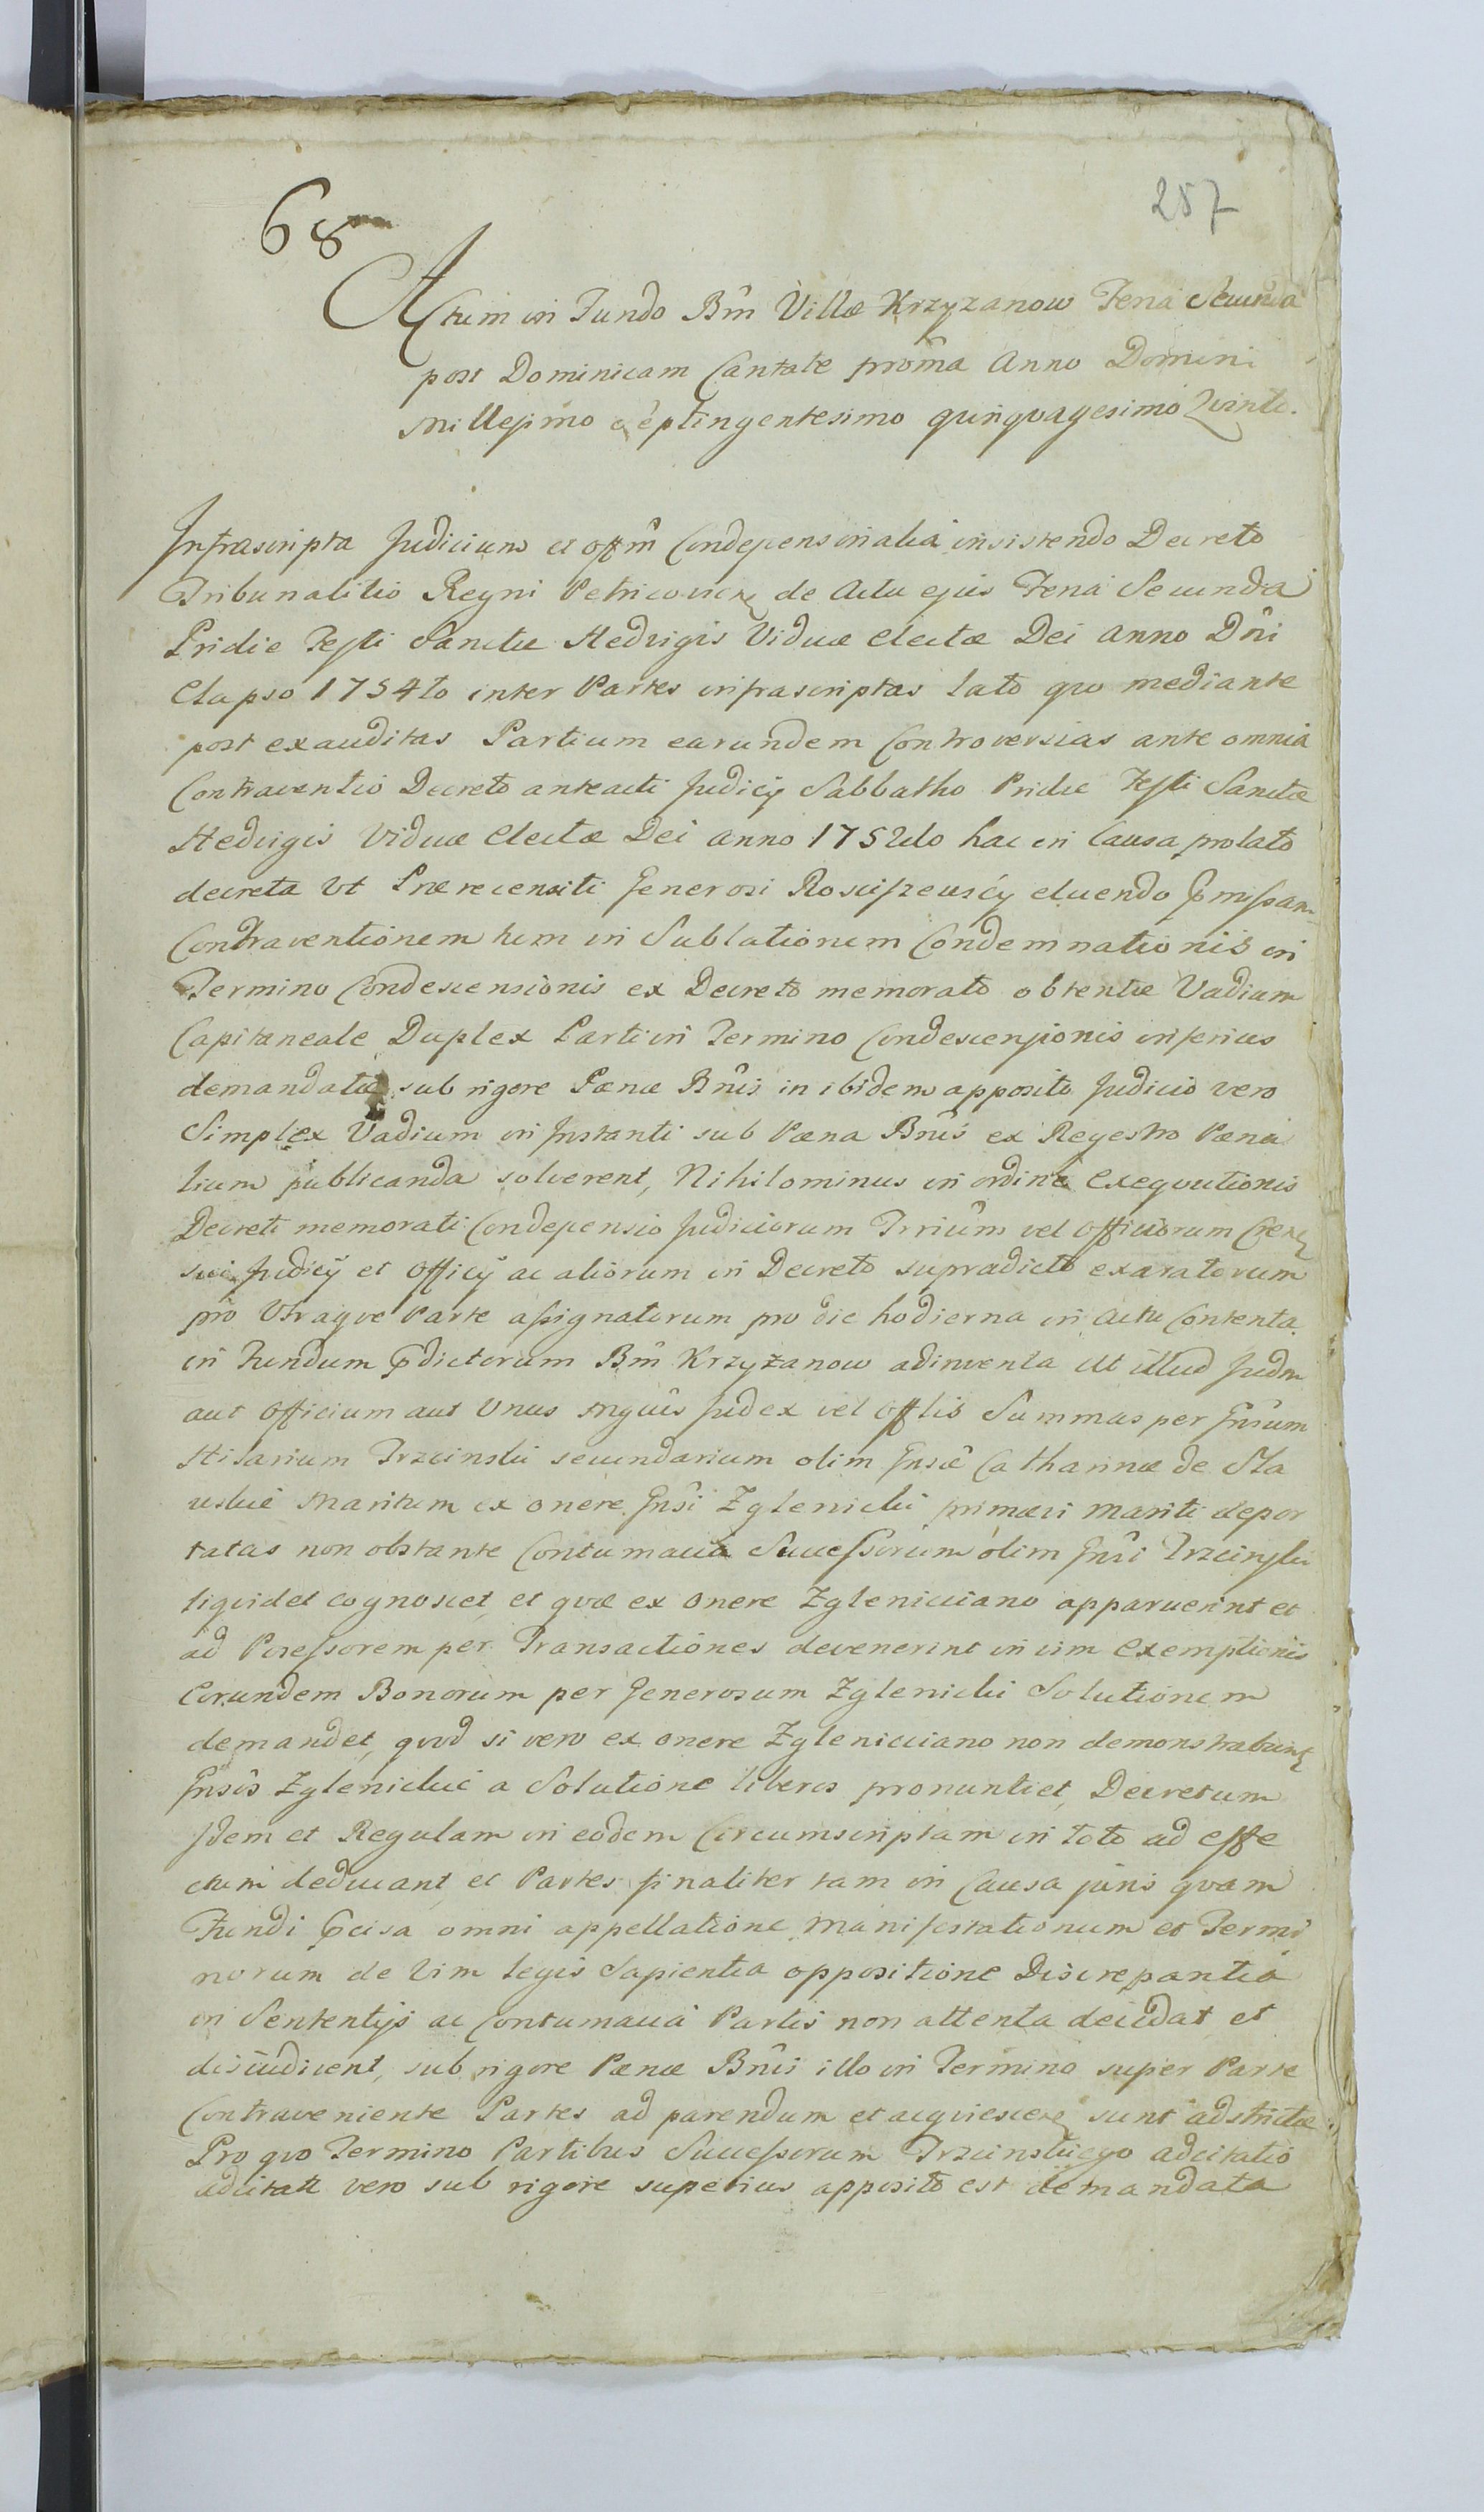 68
257
Actum in Fundo Bm̃ Villæ Krzyzanow Feria Secunda
post Dominicam Cantate proxĩma Anno Domini
Millesimo Septingentesimo quinquagesimo Quinto.
Infrascripta Judicium et Offm̃ Condescensorialia insistendo Decreto
Tribunalitio Regni Petricovien de Actu ejus Feria Secunda
Pridie Festi Sanctæ Hedvigis Viduæ Electæ Dei Anno Dñi
Elapso 1754to inter Partes infrascriptas lato quo mediante
post exauditas Partium earundem Controversias ante omnia
Contraventio Decreto anteacti Judicij Sabbatho Pridie Festi Sanctæ
Hedvigis Viduæ Electæ Dei Anno 1752do hac in Causa prolato
decreta Ut Prærecensiti Generosi Rosciszewscy eluendo pmissam
Contraventionem tum in Sublationem Condemnationis in
Termino Condescensionis ex Decreto memorato obtentæ Vadium
Capitaneale Duplex Parti in Termino Condescensionis inferius
demandatæ sub rigore Pænæ Bnĩs in ibidem apposito Judicio vero
Simplex Vadium in Instanti sub Pæna Bnĩs ex Regestro Pæna
lium publicanda solverent, Nihilominus in ordine Exequutionis
Decreti memorati Condescensio Judiciorum Trriũm vel Officiorum Cren
sui Judicij et Officij ac aliorum in Decreto supradicto exaratorum
pro Utraque Parte assignatorum pro die hodierna in Actu Contenta
in Fundum pdictorum Bm̃ Krzyżanow adinventa Ut illud Judm
aut Officium aut Unus ingũis Judex vel Offlis Summas per Gnsum
Hilarium Trzcinski secundarium olim Gnsæ Catharinæ de Sla
wskie Maritum ex onere Gnsi Zglenicki primævi Mariti depor
tatas non obstante Contumacia Successorum olim Gnsi Trzcinski
liquidet cognoscet, et quæ ex Onere Zglenicciano apparuerint et
ad Possessorem per Transactiones devenerint in vim Exemptionis
Eorundem Bonorum per Generosum Zglenicki Solutionem
demandet, quod si vero ex onere Zglenicciano non demonstrabunt
Gnsos Zglenickie a Solutione liberos pronuntiet, Decretum
Idem et Regulam in eodem Circumscriptam in toto ad effe
ctum deducant, et Partes finaliter tam in Causa juris quam
Fundi pcisa omni appellatione, Manifestationum et Termi
norum de Vim legis Sapientia oppositione Discrepantia
in Sententijs ac Contumacia Partis non attenta decidat et
disiudicent, sub rigore Pænæ Bnĩs illo in Termino super Parte
Contraveniente Partes ad parendum et acquiescen sunt adstrictæ
Pro quo Termino Partibus Successorum Trzcinskiego adcitatio
adcitati vero sub rigore superius apposito est demandata